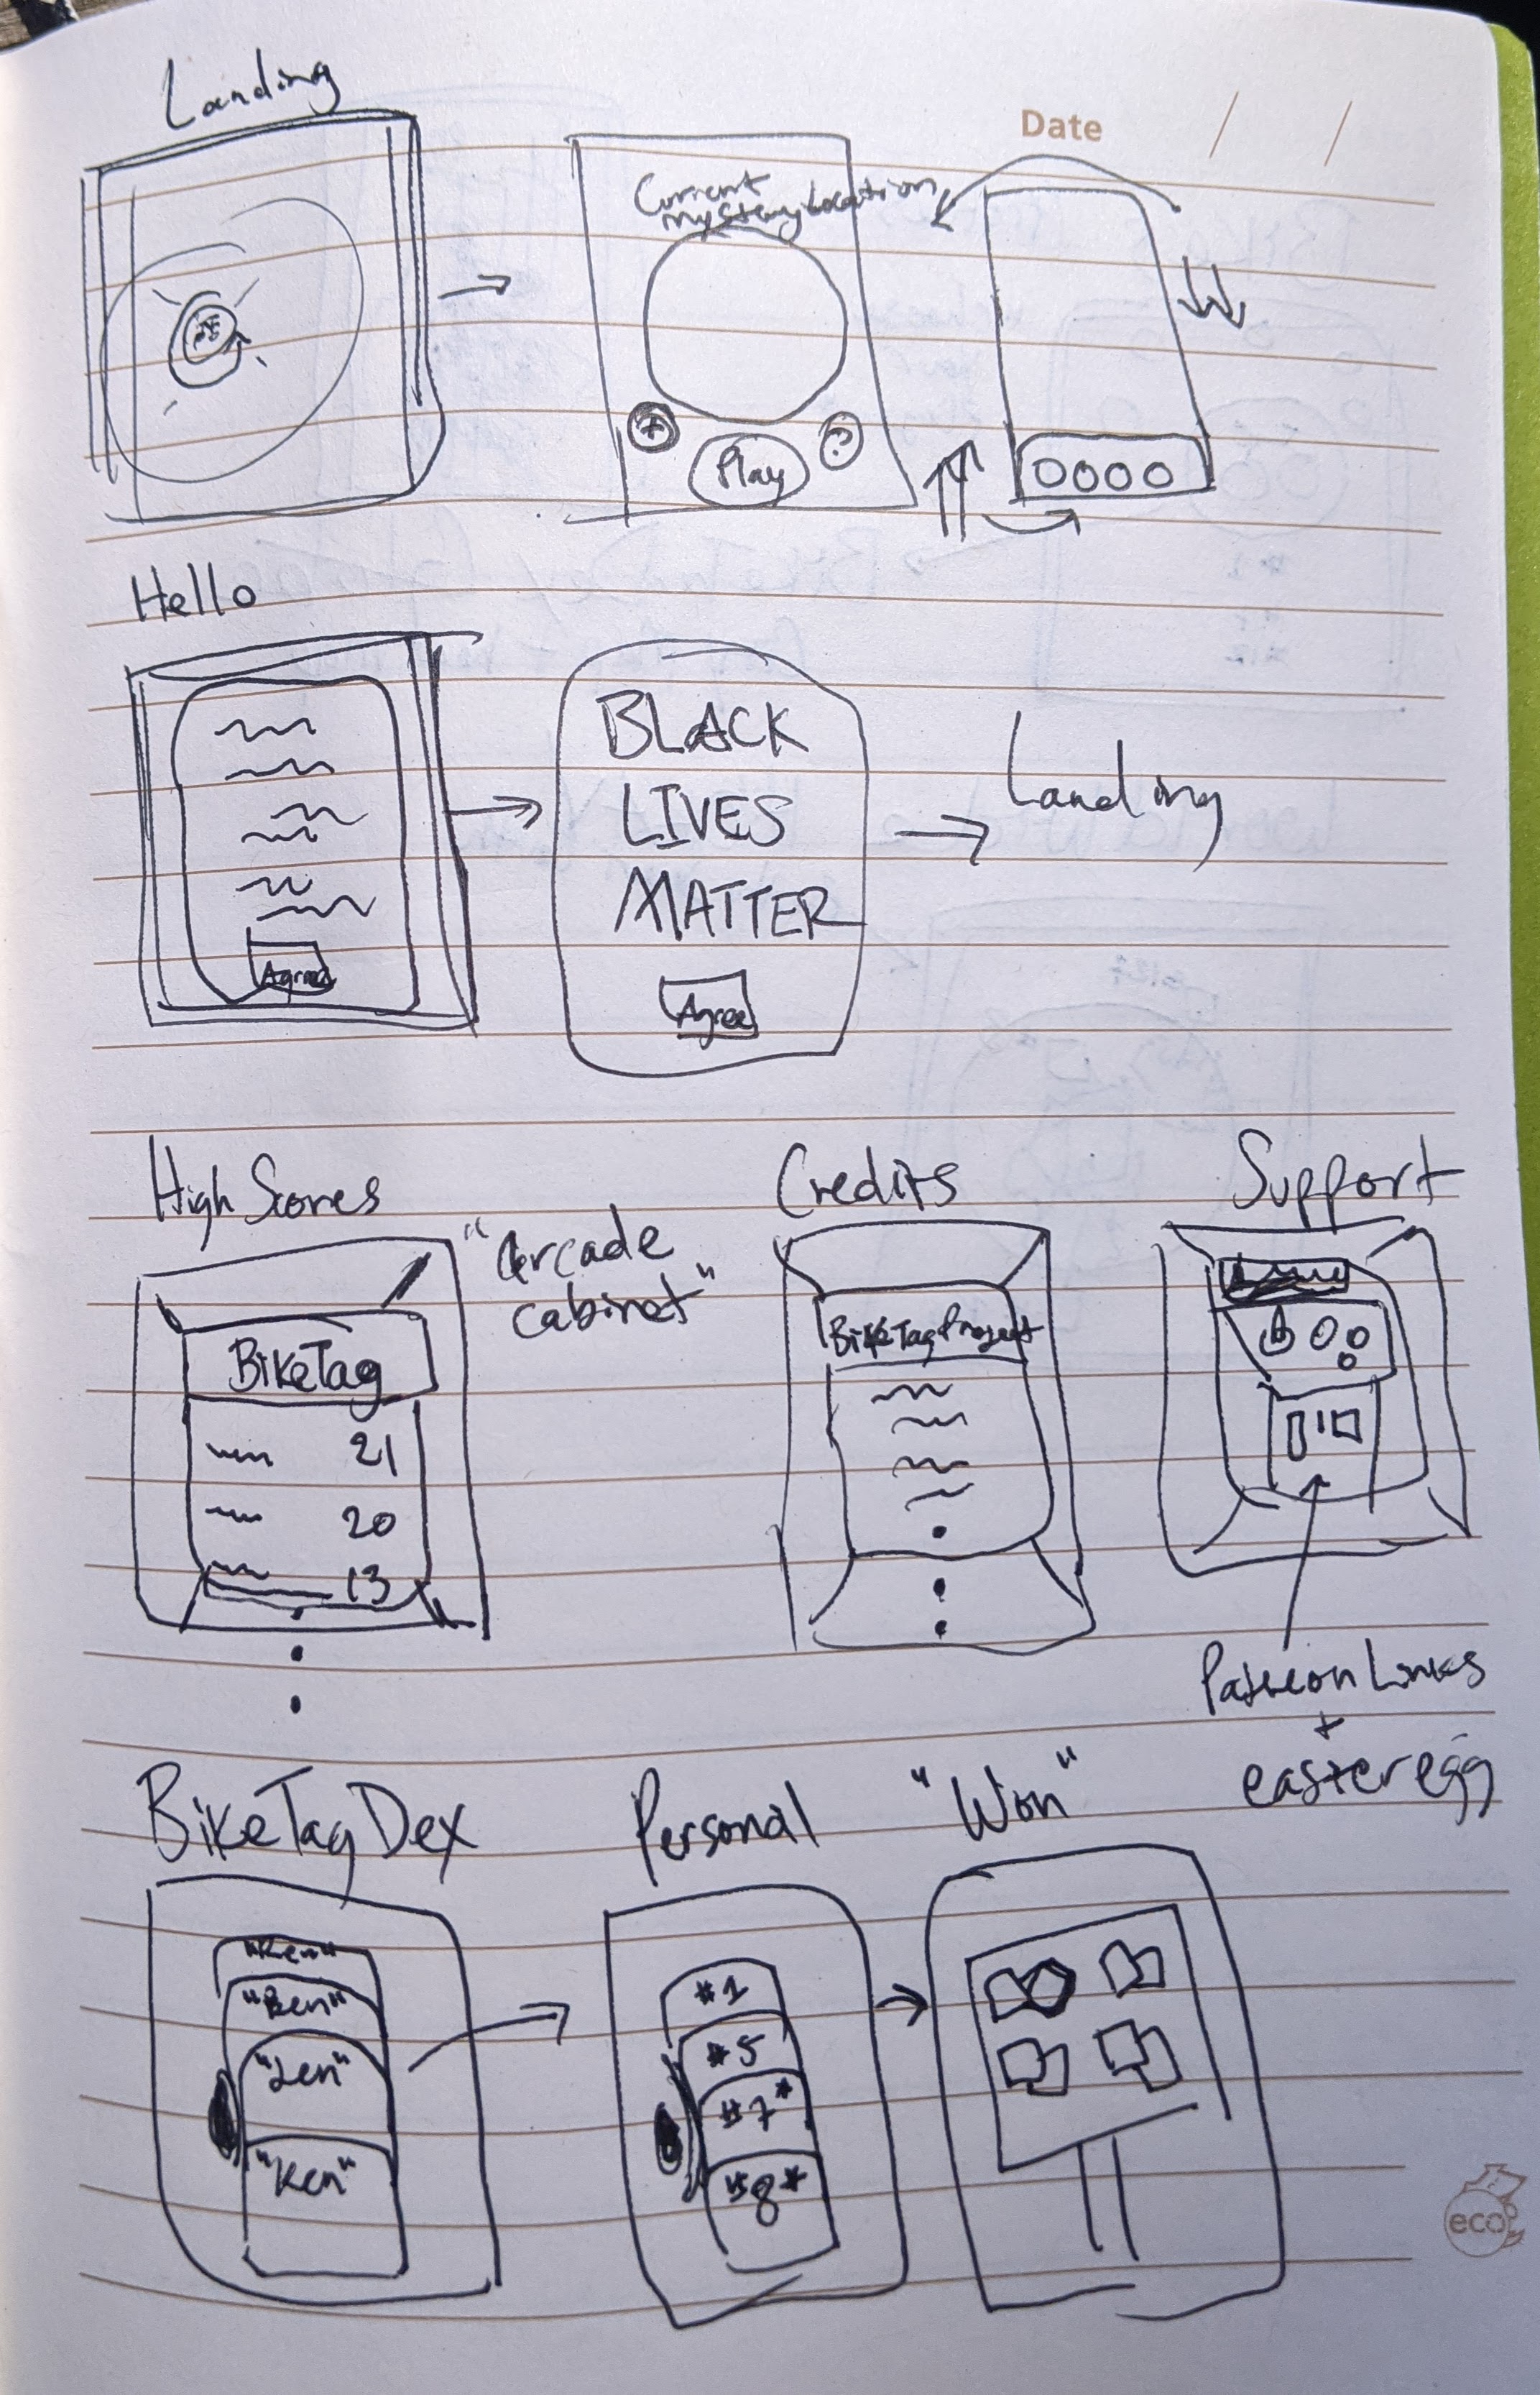 Landing
Date / /
Current
mystery Location
+
?
Play
Hello
BLACK
LIVES
MATTER
Agree
Agree
Landing
High Scores
"Arcade
cabinet"
BikeTag
21
20
13
Credits
BikeTag Project
Support
Patreon Links
+
easter egg
BikeTag Dex
"Ben"
"Len"
"Ken"
Personal
#1
#5
#7*
#8*
"Won"
eco